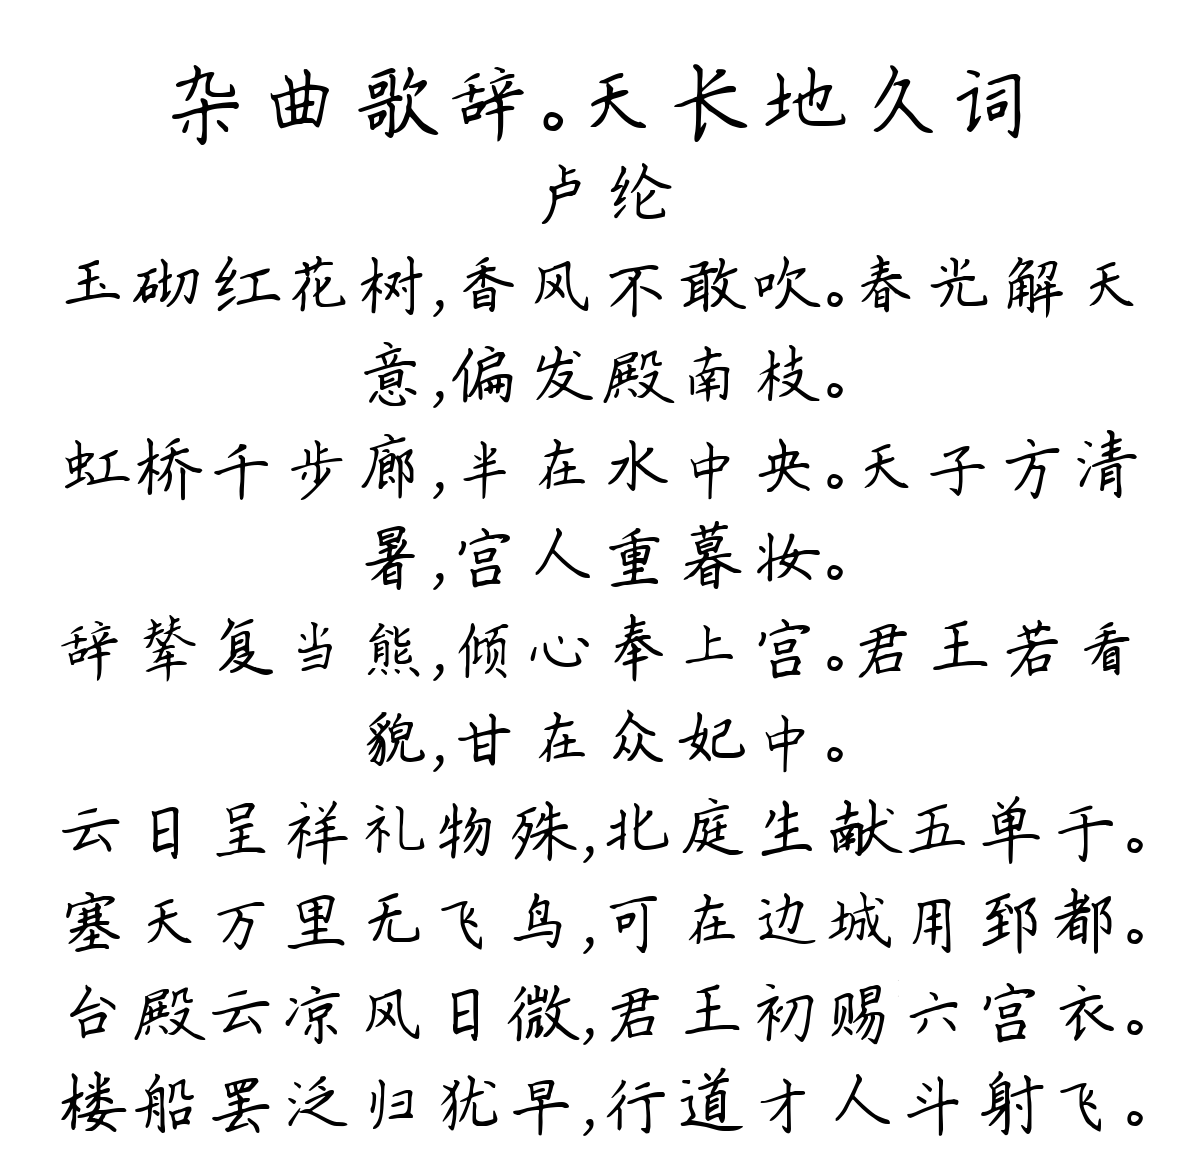 杂曲歌辞。天长地久词
卢纶
玉砌红花树,香风不敢吹。春光解天
意,偏发殿南枝。
虹桥千步廊,半在水中央。天子方清
暑,宫人重暮妆。
辞辇复当熊,倾心奉上宫。君王若看
貌,甘在众妃中。
云日呈祥礼物殊,北庭生献五单于。
塞天万里无飞鸟,可在边城用郅都。
台殿云凉风日微,君王初赐六宫衣。
楼船罢泛归犹早,行道才人斗射飞。